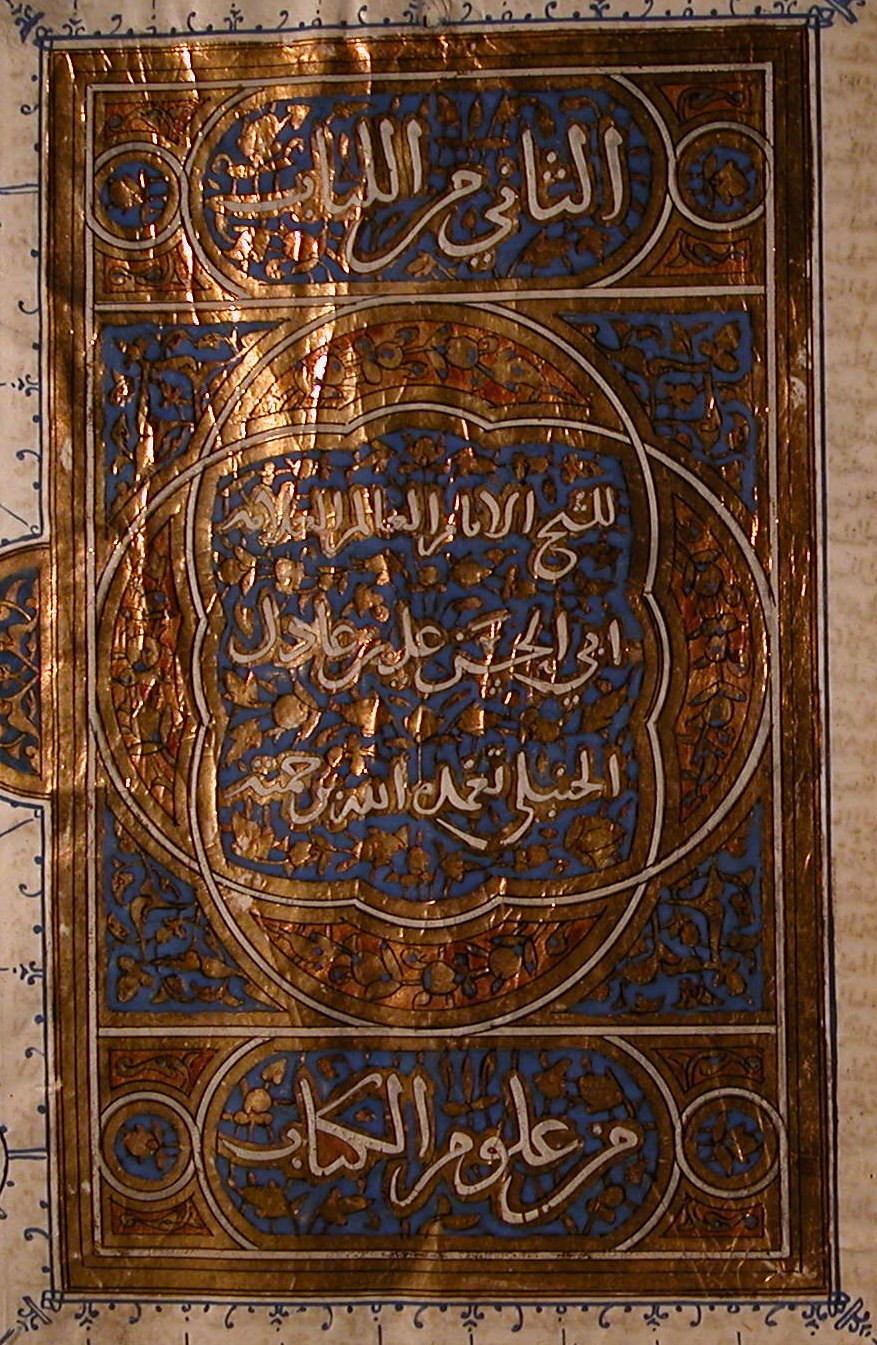 الثاني من اللباب
للشيخ الامام العالم العلامه
ابي الحسن علي بن عادل
الحنبلي تغمده الله برحمته
من علوم الكتاب